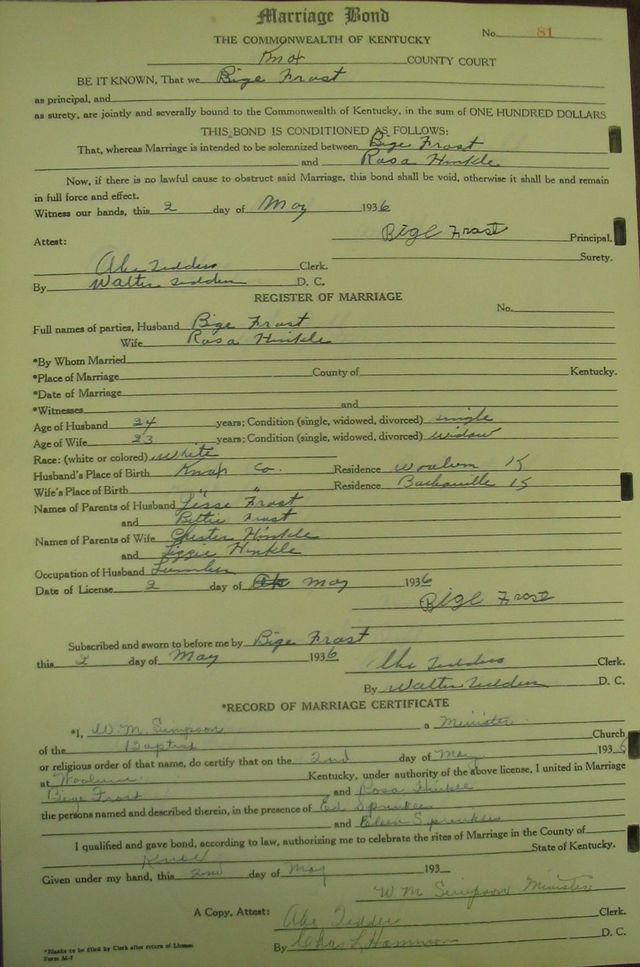 Marriage Bond
THE COMMONWEALTH OF KENTUCKY No. 81
Knox COUNTY COURT
BE IT KNOWN, That we Bige Frost
as principal, and
as surety, are jointly and severally bound to the Commonwealth of Kentucky, in the sum of ONE HUNDRED DOLLARS
THIS BOND IS CONDITIONED AS FOLLOWS:
That, whereas Marriage is intended to be solemnized between Bige Frost
and Rosa Hinkle
Now, if there is no lawful cause to obstruct said Marriage, this bond shall be void, otherwise it shall be and remain
in full force and effect.
Witness our hands, this 2 day of May 1936
Bige Frost Principal.
Attest: Surety.
Abe Tedders Clerk.
By Walter Tedders D. C.
REGISTER OF MARRIAGE
No.
Full names of parties, Husband Bige Frost
Wife Rosa Hinkle
*By Whom Married
*Place of Marriage County of Kentucky.
*Date of Marriage
*Witnesses and
Age of Husband 24 years; Condition (single, widowed, divorced) single
Age of Wife 23 years; Condition (single, widowed, divorced) widow
Race: (white or colored) white
Husband's Place of Birth Knox Co. Residence Woolum K
Wife's Place of Birth " " Residence Barbourville K
Names of Parents of Husband Jesse Frost
and Bettie Frost
Names of Parents of Wife Chester Hinkle
and Lizzie Hinkle
Occupation of Husband Lumber
Date of License 2 day of May 1936
Bige Frost
Subscribed and sworn to before me by Bige Frost
this 2 day of May 1936
Abe Tedders Clerk.
By Walter Tedders D. C.
*RECORD OF MARRIAGE CERTIFICATE
*I, W. M. Simpson a Minister
of the Baptist Church
or religious order of that name, do certify that on the 2nd day of May 1936
at Woolum Kentucky, under authority of the above license, I united in Marriage
Bige Frost and Rosa Hinkle
the persons named and described therein, in the presence of Ed Sprinkles
and Sprinkles
I qualified and gave bond, according to law, authorizing me to celebrate the rites of Marriage in the County of
Knox State of Kentucky.
Given under my hand, this 2nd day of May 193
W M Simpson Minister
A Copy, Attest: Abe Tedders Clerk.
By Chas L. Hammon D. C.
*Blanks to be filled by Clerk after return of License
Form M-7